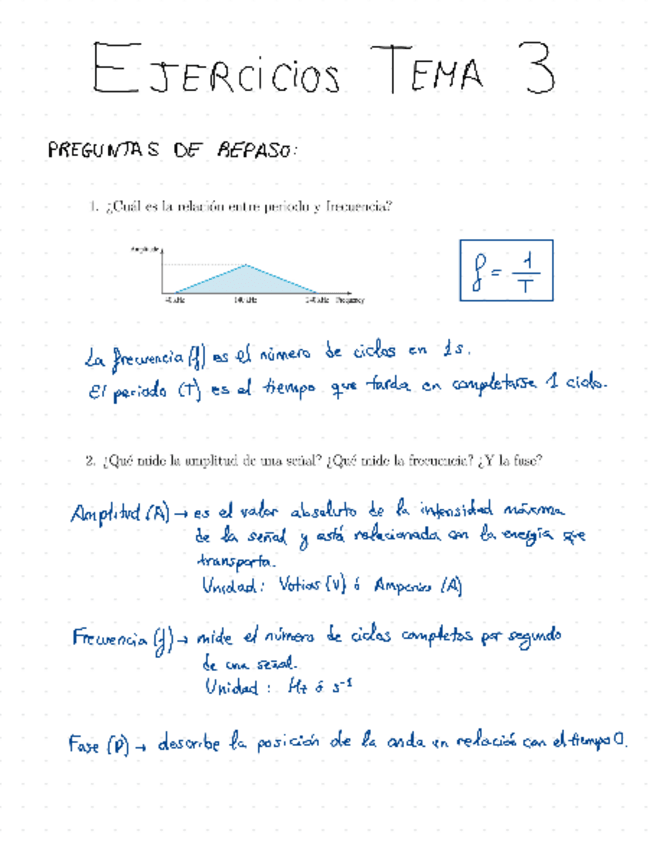 EJERCICIOS TEMA 3
PREGUNTAS DE REPASO:
1. ¿Cuál es la relación entre periodo y frecuencia?
Amplitude
40 kHz 140 kHz 240 kHz Frequency
f = 1/T
La frecuencia (f) es el número de ciclos en 1s.
El periodo (T) es el tiempo que tarda en completarse 1 ciclo.
2. ¿Qué mide la amplitud de una señal? ¿Qué mide la frecuencia? ¿Y la fase?
Amplitud (A) → es el valor absoluto de la intensidad máxima
de la señal y está relacionada con la energía que
transporta.
Unidad: Voltios (V) ó Amperios (A)
Frecuencia (f) → mide el número de ciclos completos por segundo
de una señal.
Unidad: Hz ó s⁻¹
Fase (P) → describe la posición de la onda en relación con el tiempo 0.